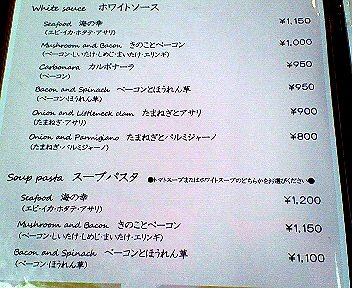 White sauce ホワイトソース
Seafood 海の幸 ¥1,150
(エビ・イカ・ホタテ・アサリ)
Mushroom and Bacon きのことベーコン ¥1,000
(ベーコン・しいたけ・しめじ・まいたけ・エリンギ)
Carbonara カルボナーラ ¥950
(ベーコン)
Bacon and Spinach ベーコンとほうれん草 ¥950
(ベーコン・ほうれん草)
Onion and Littleneck clam たまねぎとアサリ ¥900
(たまねぎ・アサリ)
Onion and Parmigiano たまねぎとパルミジャーノ ¥800
(たまねぎ・パルミジャーノ)
Soup pasta スープパスタ ●トマトスープまたはホワイトスープのどちらかをお選びください●
Seafood 海の幸 ¥1,200
(エビ・イカ・ホタテ・アサリ)
Mushroom and Bacon きのことベーコン ¥1,150
(ベーコン・しいたけ・しめじ・まいたけ・エリンギ)
Bacon and Spinach ベーコンとほうれん草 ¥1,100
(ベーコン・ほうれん草)